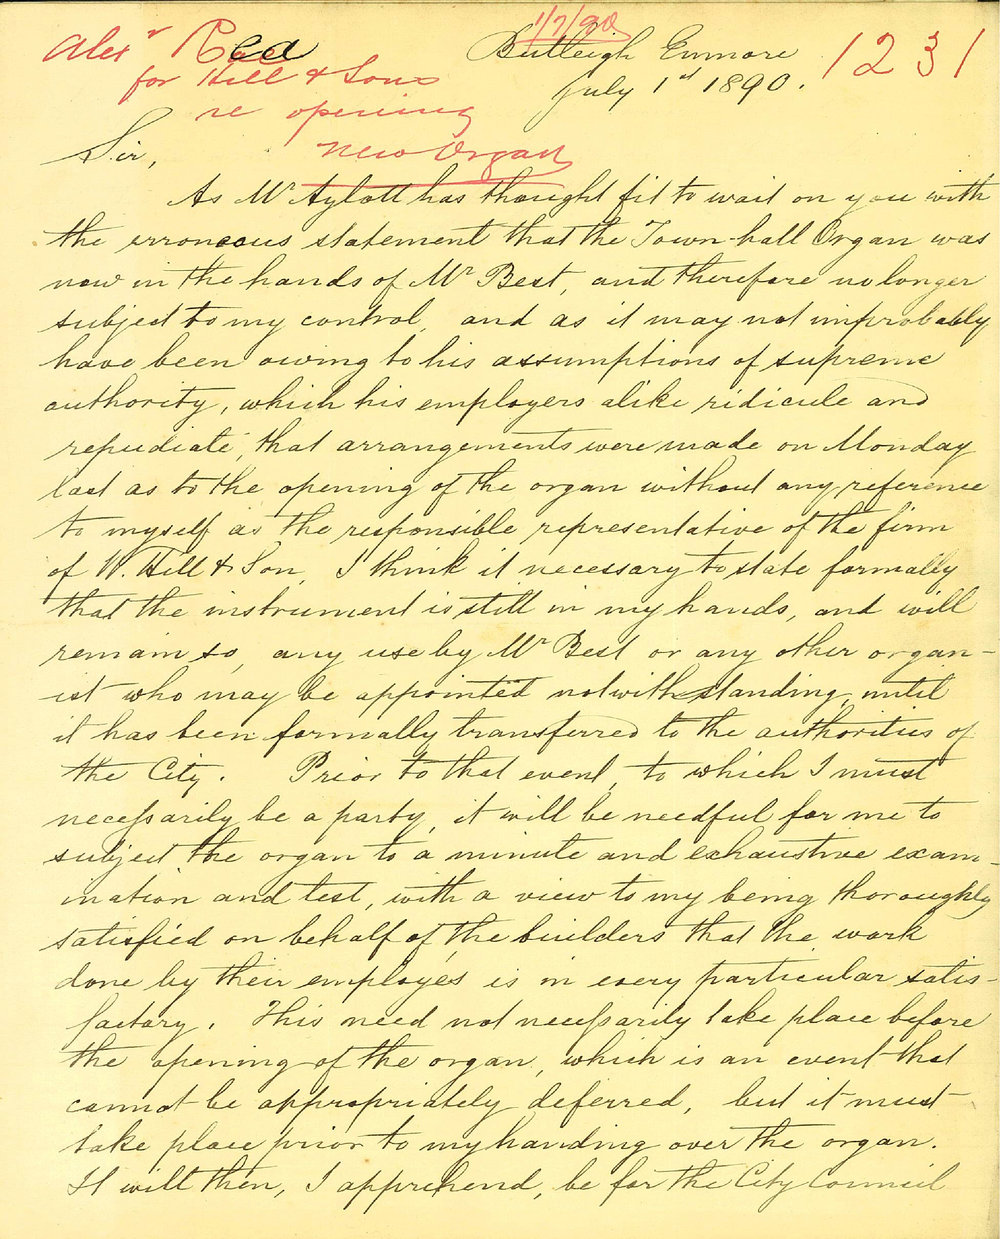 1/7/90
Alexr Rea Butleigh Enmore 1231
for Hill & Sons July 1st 1890.
re opening
New Organ
Sir,
As Mr Aylott has thought fit to wait on you with
the erroneous statement that the Town-hall Organ was
now in the hands of Mr Best, and therefore no longer
subject to my control, and as it may not improbably
have been owing to his assumptions of supreme
authority, which his employers alike ridicule and
repudiate, that arrangements were made on Monday
last as to the opening of the organ without any reference
to myself as the responsible representative of the firm
of W. Hill & Son, I think it necessary to state formally
that the instrument is still in my hands, and will
remain so, any use by Mr Best or any other organ-
ist who may be appointed notwithstanding, until
it has been formally transferred to the authorities of
the City. Prior to that event, to which I must
necessarily be a party, it will be needful for me to
subject the organ to a minute and exhaustive exam-
ination and test, with a view to my being thoroughly
satisfied on behalf of the builders that the work
done by their employés is in every particular satis-
factory. This need not necessarily take place before
the opening of the organ, which is an event that
cannot be appropriately deferred, but it must
take place prior to my handing over the organ.
It will then, I apprehend, be for the City Council